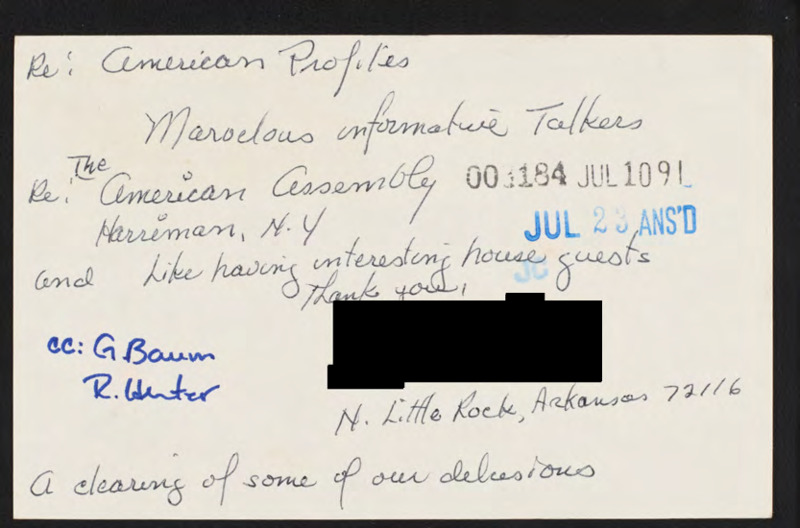 Re: American Profiles
Marvelous informative Talkers
Re: The American Assembly
001184 JUL 10 91
Harriman, N.Y
JUL 23 ANS'D
JC
and Like having interesting house guests
Thank you,
cc: G Baum
R. Hunter
N. Little Rock, Arkansas 72116
A clearing of some of our delusions